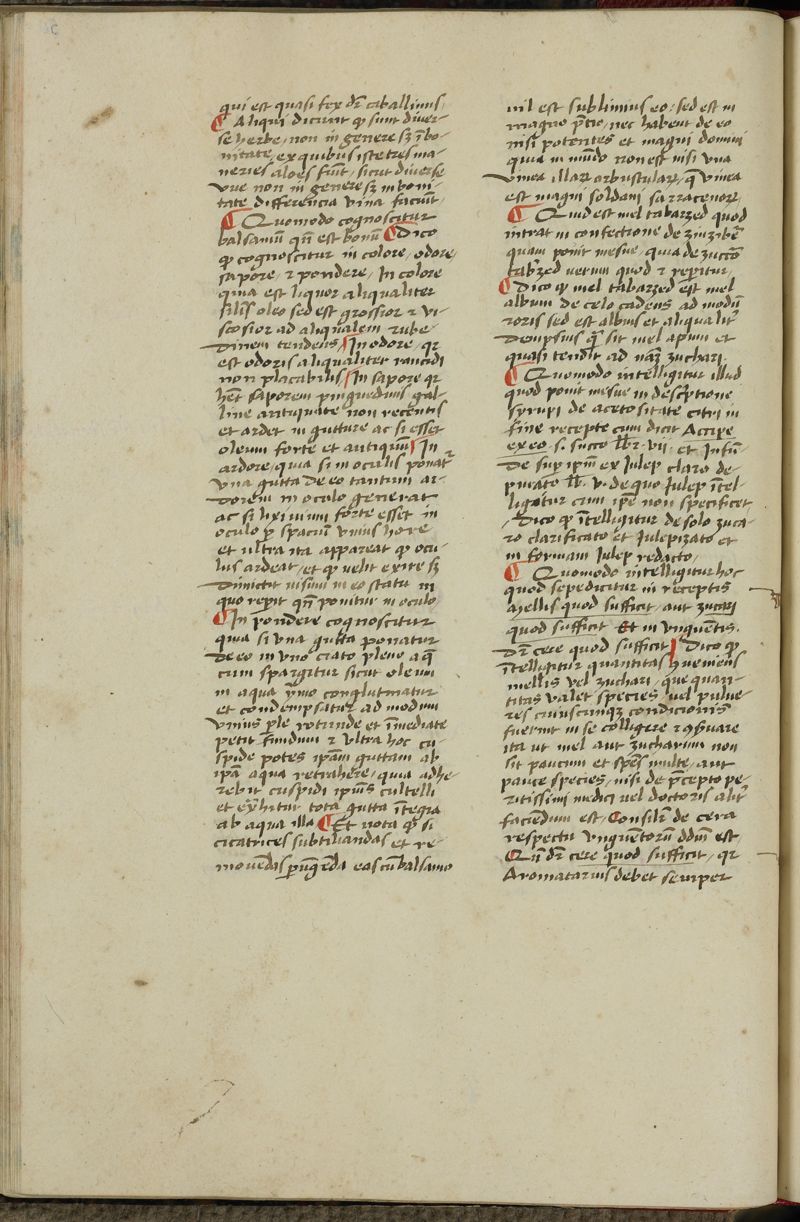 qui est quasi fex dr̄ caballinus
¶ Aliqui dicunt ꝙ sunt diuer-
se herbe, non in genere sꝫ ī bo-
nitate, ex quibus iste tres ma-
neries aloes fiūt, sicut diuerse
vue non in genere sꝫ in boni-
tate differencia vina faciūt
¶ Quomodo cognoscitur
balsamū qn̄ est bonū ¶ Dico
ꝙ cognoscitur in colore, odore,
sapore, ⁊ pondere, In colore
quia est liquor aliqualiter
sil̄is oleo sed est grossior ⁊ vi-
scosior ad aliqualem rube-
dinem tendens, In odore, qr
est odoris aliqualiter rancidi
non placabilis, In sapore qr
hēt saporem pinguedinis gal-
line antiquate non recentis
et ardet in gutture ac si esset
oleum forte et antiquū In
ardore, quia si in oculis ponat᷑
vna gutta de eo tantum ar-
dorem in oculo generat
ac si lixiuium forte esset in
oculo ꝑ spaciū vnius hore
et ultra ita appareat ꝙ ocu-
lus ardeat, et ꝙ velit exire sꝫ
dimictit uisum in eo statu in
quo reperit qn̄ ponitur in oculo
¶ In pondere cognoscitur
quia si vna gutta ponatur
de eo in vno ciato pleno aq̄
cum spargitur sicut oleum
in aqua ymo conglutinatur
et condempsatur ad modum
vnius ꝑle rotunde et īmediate
petit fundum ⁊ vltra hoc cu-
spide potes ip̄am guttam ab
ip̄a aqua retrahere, quia adhe-
rebit cuspidi ip̄ius cultelli
et ex̄hitur tota gutta ītegra
ab aqua illa ¶ Et nota ꝙ si
cicatrices subtiliandas et re-
mouēdas eas cū balsamo
nil est sublimius eo, sed est in
magno p̄cio, nec habent de eo
nisi potentes et magni domini
quia in mūdo non est nisi vna
vinea illaꝝ arbustulaꝝ, q̄ vinea
est magni soldani sarracenoꝝ
¶ Quid est mel tabarzed quod
intrat in confectione de zinzibēr
quam ponit mesue, quia de zuccro
tabrzed uerum quod ⁊ reperitur,
¶ Dico ꝙ mel tabarzed est mel
album de celo cadens ad modū
roris sed est albius et aliqualit᷑
dempsius q̄ sit mel apum et
quasi tendit ad naꝫ zuchari
¶ Quomodo intelligitur illud
quod ponit mesue in descriptione
syrupi de acetositate citri in
fine recepte cum dicit Accipe
ex eo .s. succo lbr vij. et Infū-
de suꝑ ip̄m ex Julep claro de-
puiato lb. v. de quo Julep ītel-
ligatur cum ip̄e non specificet
, Dico ꝙ ītelligitur de solo zuca-
ro clarificato et Julepizato et
in formam Julep redacto,
¶ Quomodo intelligitur hoc
quod sepe dicitur in receptis
Mellis quod sufficit, aut zucari
quod sufficit Et in vnquentis.
dr̄ cere quod sufficit Dico ꝙ
ītelligitur quantitas ꝯueniens
mellis vel zuchari, que quan-
titas valet species, uel pulue-
res cuiuscunqꝫ condicionis
fuerint in se colligere ⁊ ꝯseruare
ita ut mel aut zucharum non
sit paucum et sp̄es multe, aut
pauce species, nisi de p̄cepto pe-
ritissimi medici uel doctoris alit᷑
faciēdum est, Consil̄r de cera
respectu vnguentorū ddm̄ est
Cū dr̄ cere quod sufficit, qr
Aromatarius debet semper